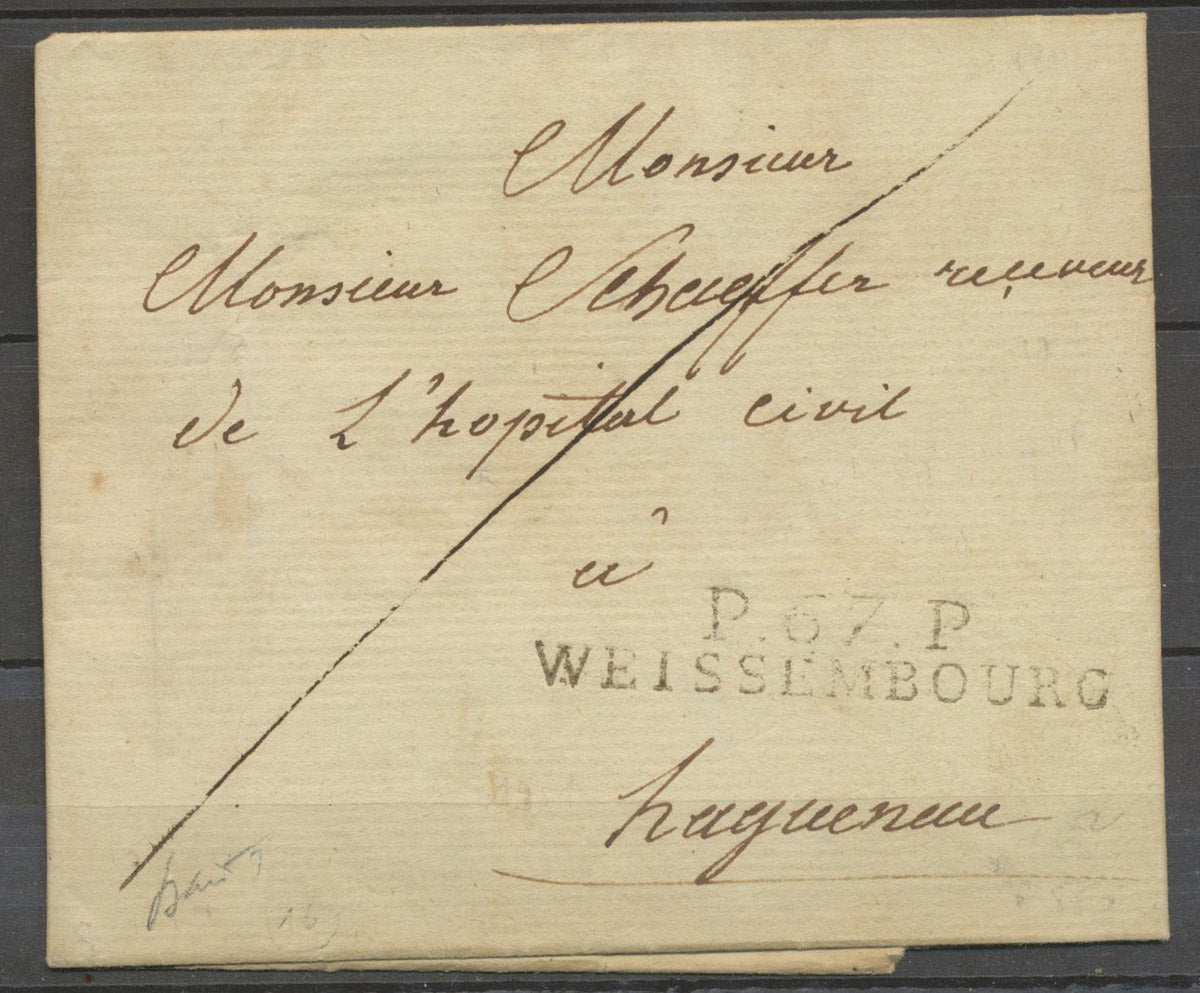 Monsieur
Monsieur Schaeffer receveur
de L'hopital civil
à
P.67.P
WEISSEMBOURG
haguenau
16